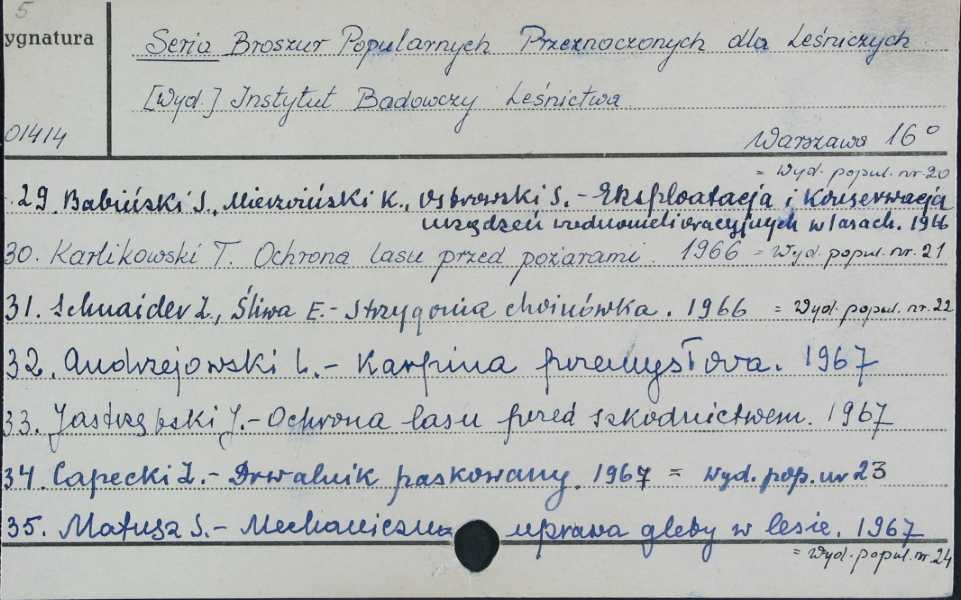 5
ygnatura
Seria Broszur Popularnych Przeznoczonych dla Leśniczych
[Wyd.] Instytut Badowczy Leśnictwa
01414
Warszawa 16°
= Wyd. popul. nr. 20
29. Babiński S., Mierzwiński K., Ostrowski S. - Eksploatacja i Konserwacja
urządzeń wodnomelioracyjnych w lasach. 1966
30. Karlikowski T. Ochrona lasu przed pożarami. 1966 = Wyd. popul. nr. 21
31. Schnaider Z., Śliwa E. - Strzygonia choinówka. 1966 = Wyd. popul. nr. 22
32. Andrzejowski L. - Karpina przemysłowa. 1967
33. Jastrzębski J. - Ochrona lasu przed szkodnictwem. 1967
34. Capecki Z. - Drwalnik paskowany. 1967 = wyd. pop. nr 23
35. Matusz S. - Mechaniczna uprawa gleby w lesie. 1967
= Wyd. popul. nr. 24